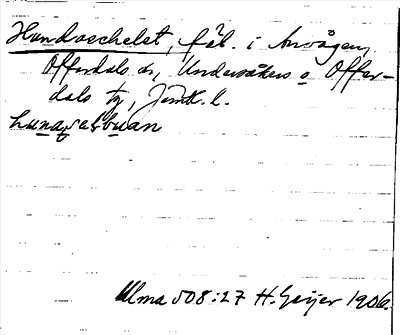 Hundaschelet, fäb. i Änvågen,
Offerdals sn, Undersåkers o Offer-
dals tg, Jämtl. l.
Ulma 508:27 H. Geijer 1906.